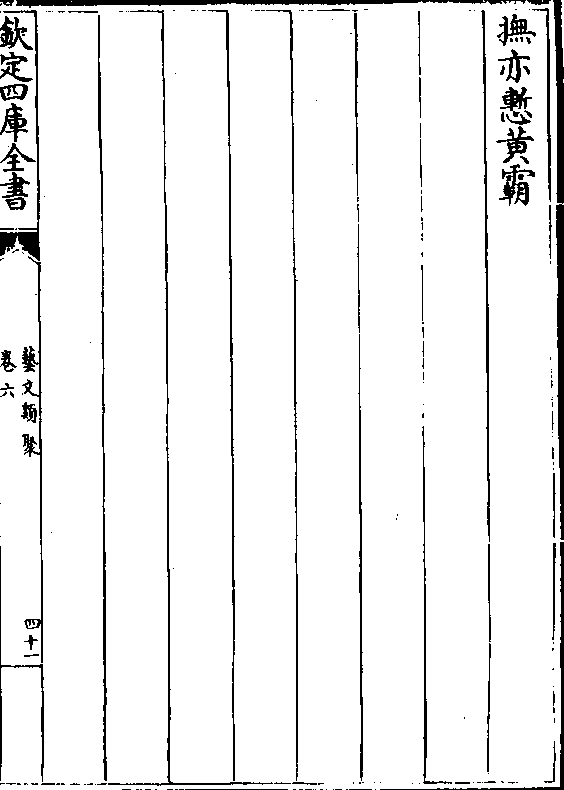 撫亦慙黃霸
欽定四庫全書
藝文類聚
卷六
四十一